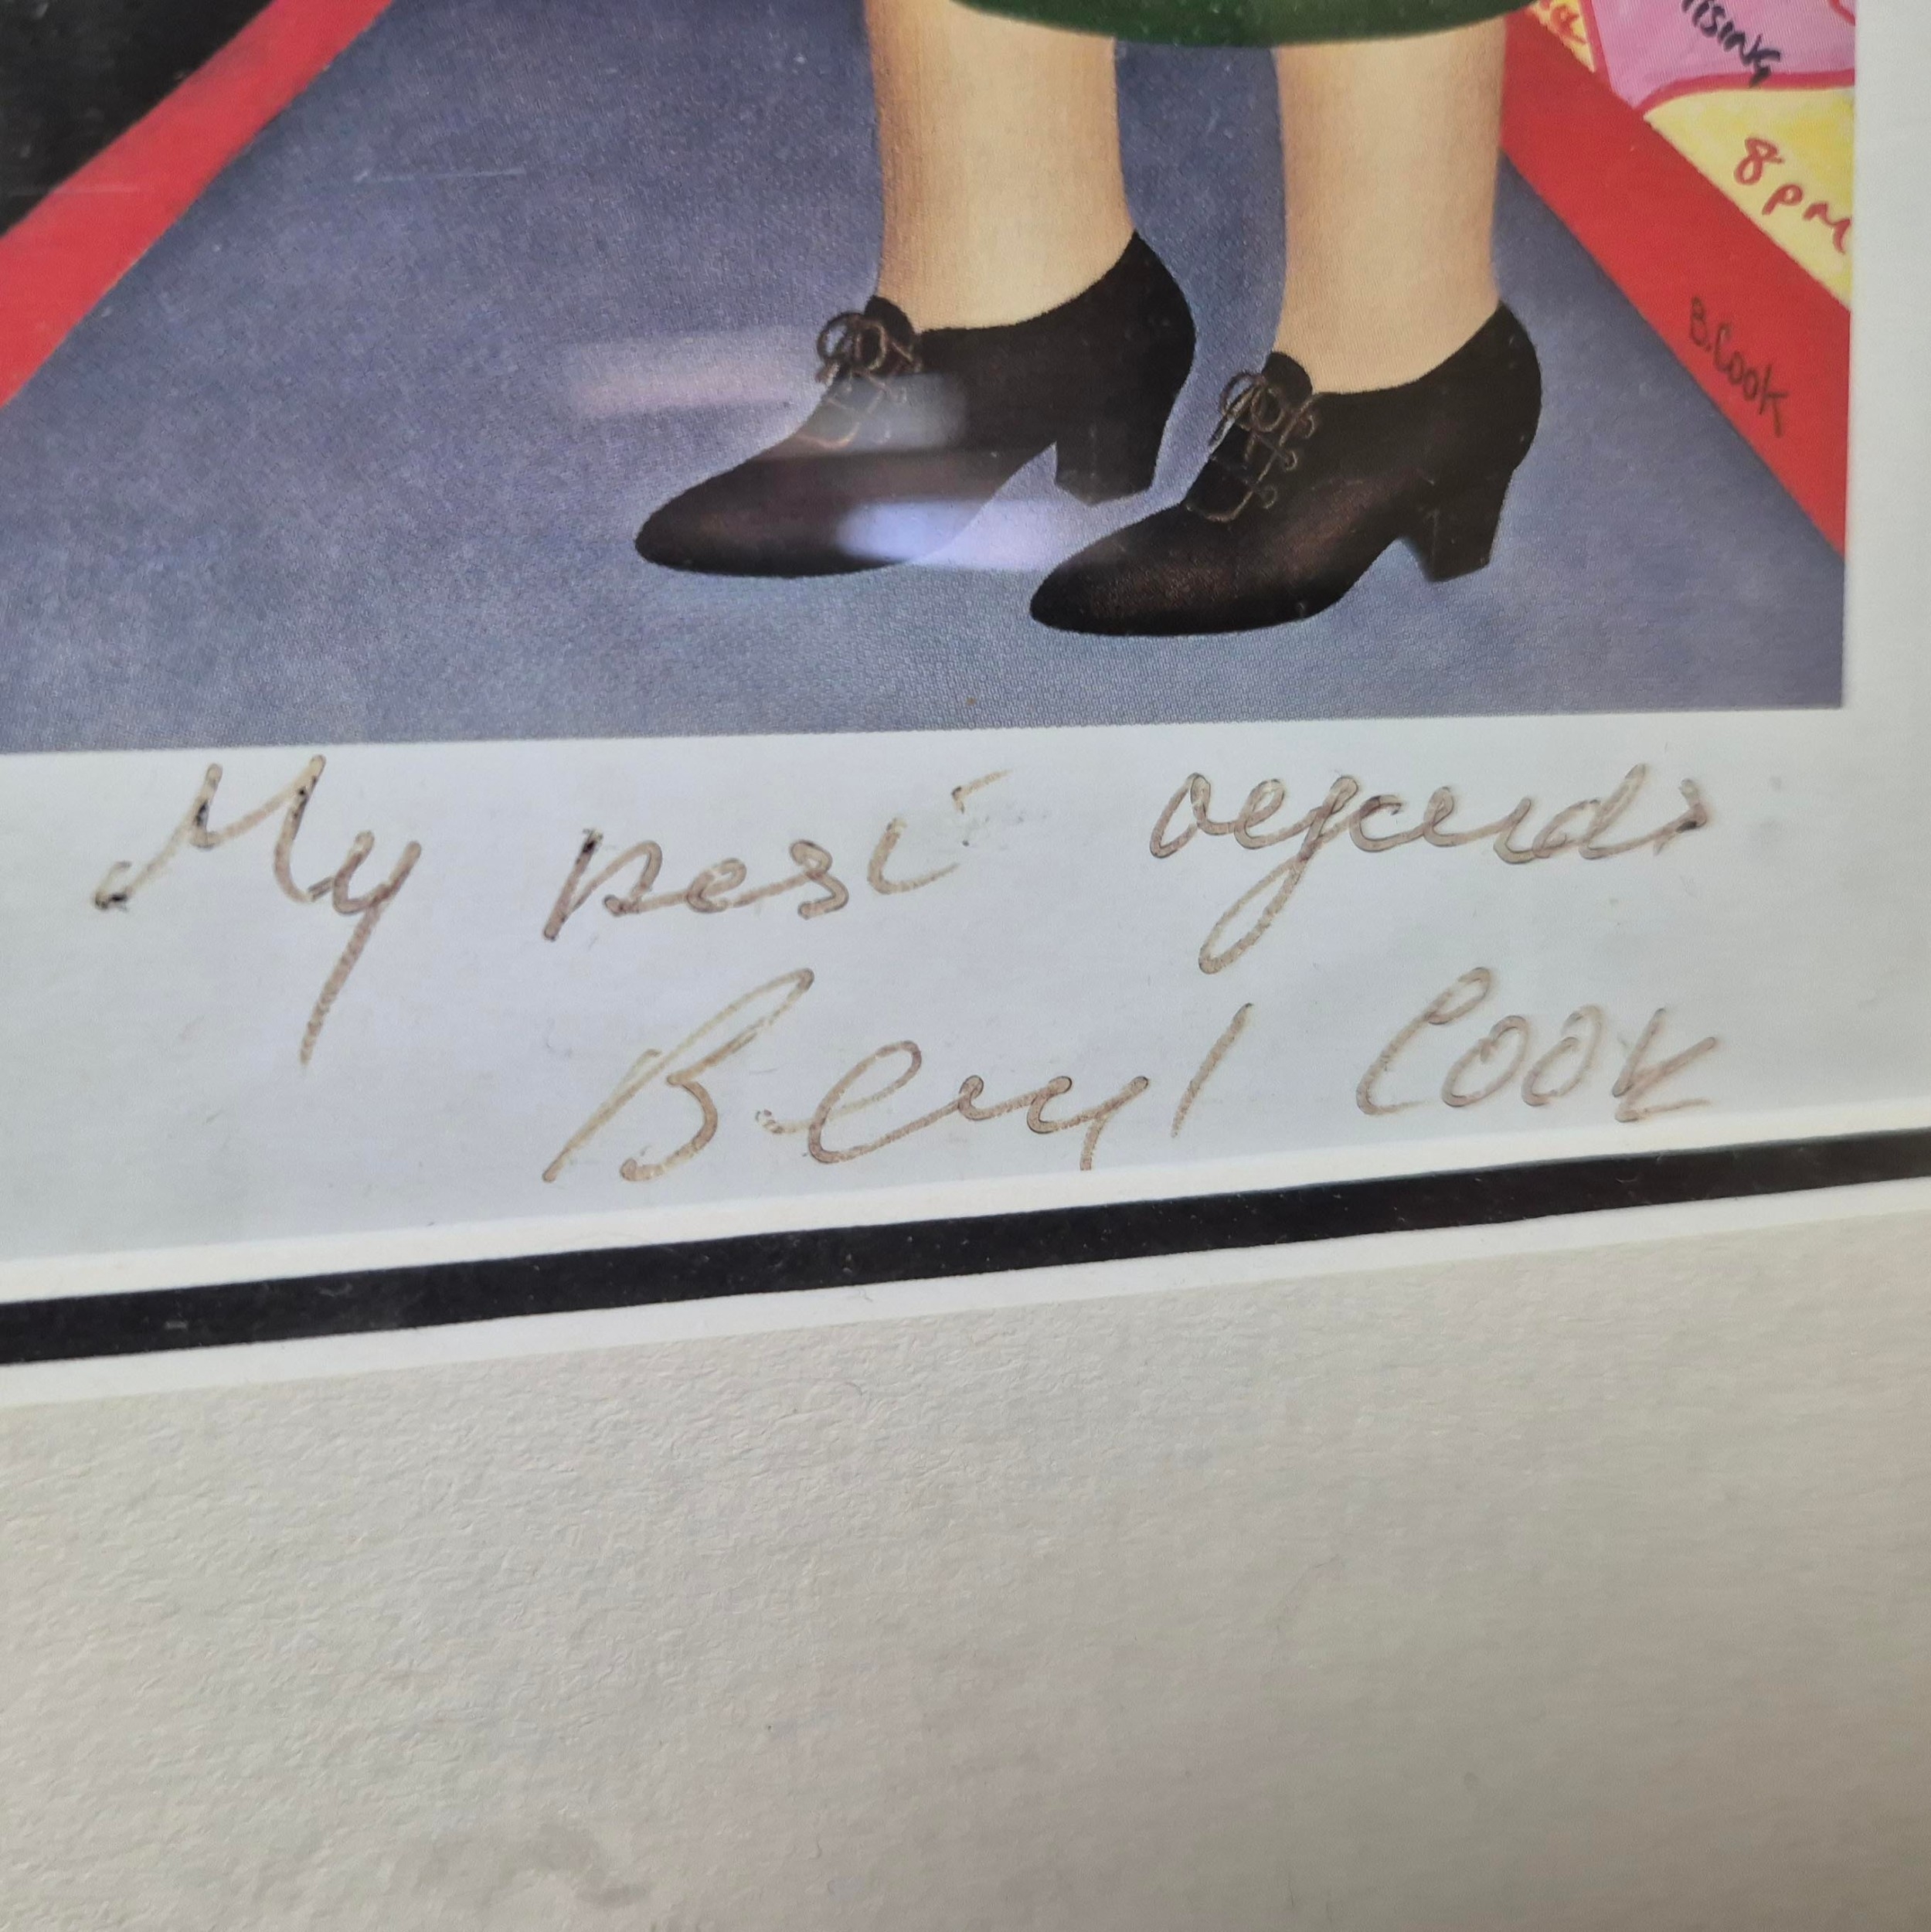 ISING
8pm
B. Cook
My best regards
Beryl Cook